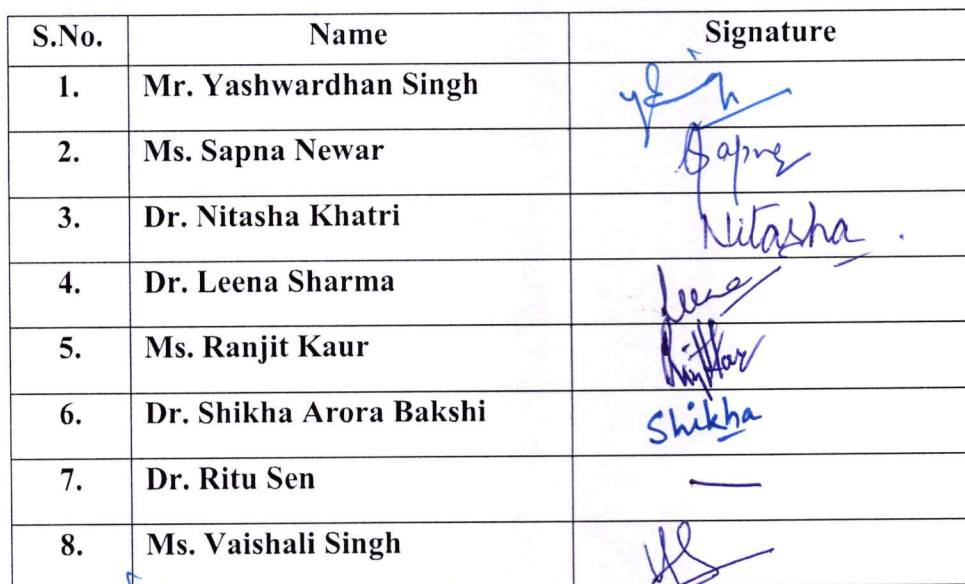 S.No. Name Signature
1. Mr. Yashwardhan Singh
2. Ms. Sapna Newar Sapna
3. Dr. Nitasha Khatri Nitasha.
4. Dr. Leena Sharma Leena
5. Ms. Ranjit Kaur
6. Dr. Shikha Arora Bakshi Shikha
7. Dr. Ritu Sen —
8. Ms. Vaishali Singh